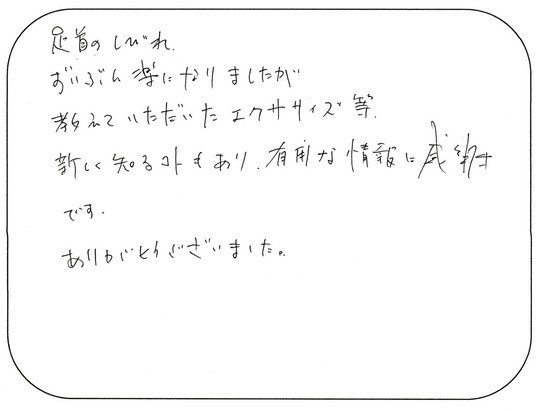 足首のしびれ、
ずいぶん楽になりましたが
教えていただいたエクササイズ等、
新しく知るコトもあり、有用な情報に感謝
です。
ありがとうございました。